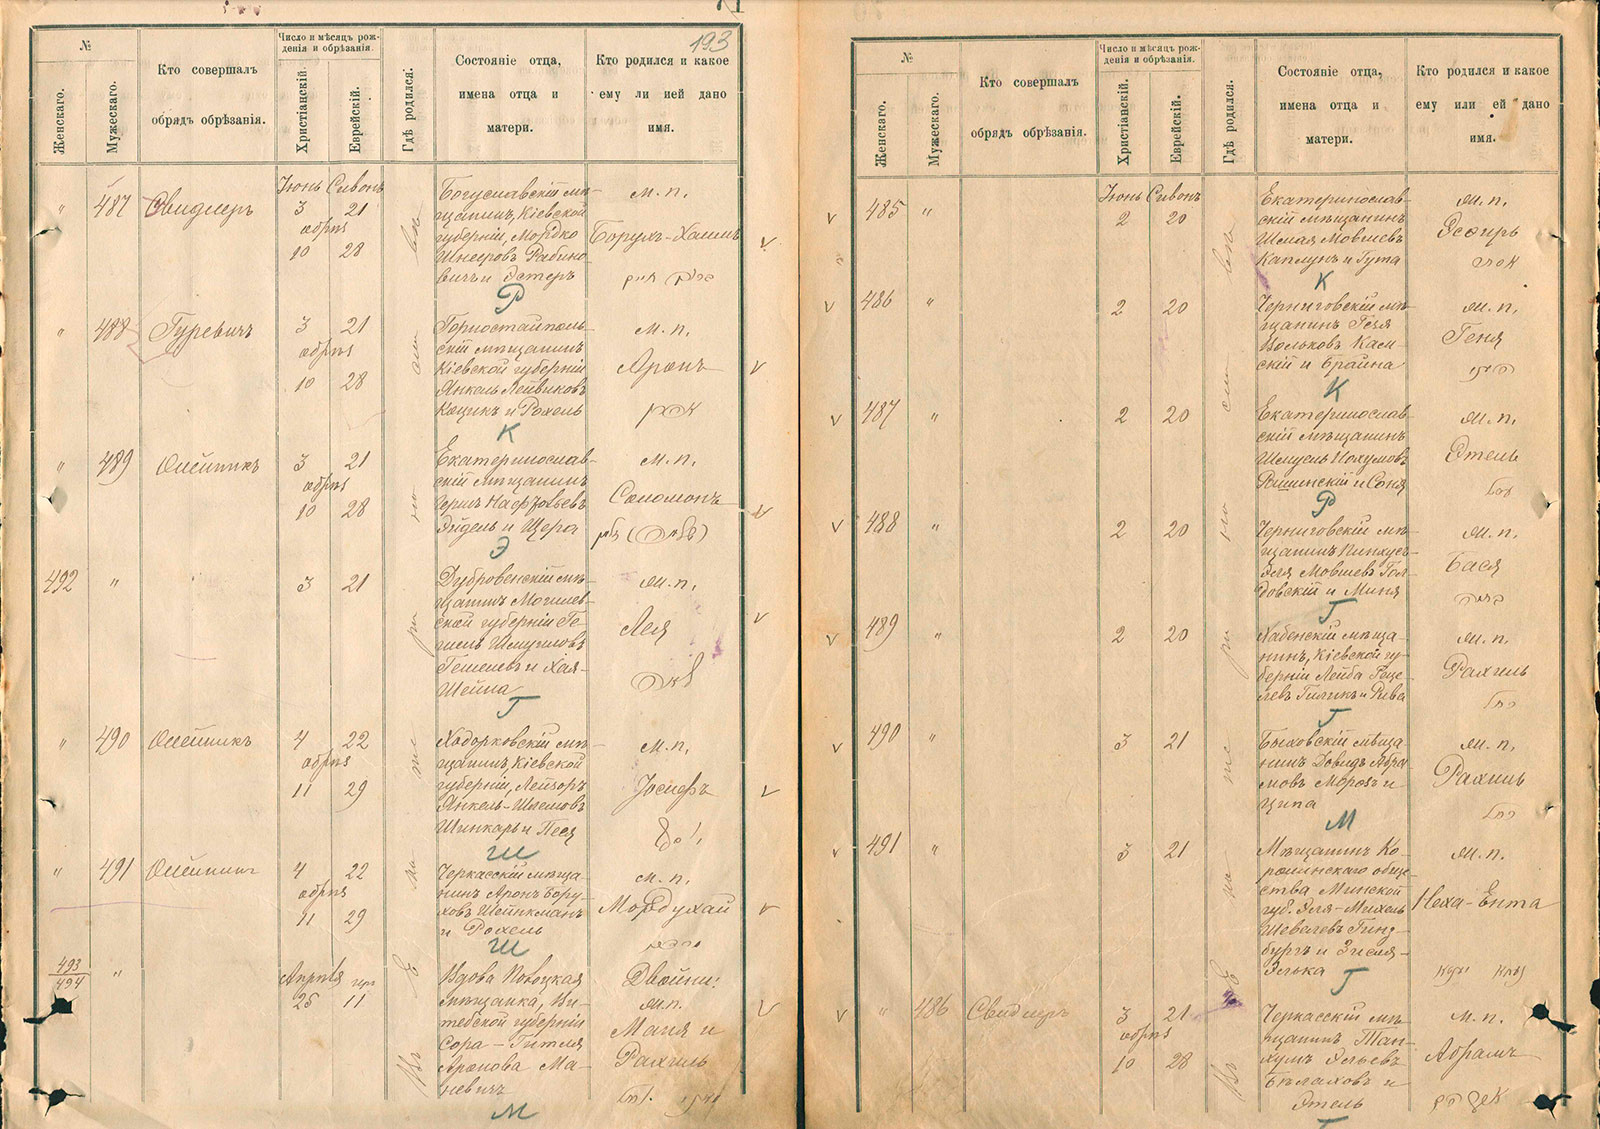 193
№
Женскаго.
Мужескаго.
Кто совершалъ
обрядъ обрѣзанія.
Число и мѣсяцъ рож-
денія и обрѣзанія.
Христіанскій.
Еврейскій.
Гдѣ родился:
Состояніе отца,
имена отца и
матери.
Кто родился и какое
ему ли ией дано
имя.
Іюнь Сивонъ
" 487 Свидлеръ 3 21
обрѣз
10 28
Богуславскій мѣ-
щанинъ, Кіевской
губерніи, Мордко
Шнееровъ Рабино-
вичъ и Эстеръ
м. п.
Борухъ-Хаимъ
ברוך חיים
Р
" 488 Гуревичъ 3 21
обрѣз
10 28
Горностайполь-
скій мѣщанинъ
Кіевской губерніи
Янкель Лейвиковъ
Коцикъ и Рохель
м. п.
Аронъ
אהרן
К
" 489 Олейникъ 3 21
обрѣз
10 28
Екатеринослав-
скій мѣщанинъ
Эйдель и
м. п.
Соломонъ
Э
492 " 3 21
Дубровенскій мѣ-
щанинъ Могилев-
ской губерніи Ге-
Гешелевъ и Хая-
Шейна
м. п.
Лея
לאה
Г
" 490 Олейникъ 4 22
обрѣз
11 29
Ходорковскій мѣ-
щанинъ, Кіевской
губерніи, Лейзоръ
Янкель-Шлемовъ
Шинкарь и Песя
м. п.
Іосифъ
Ш
" 491 Олейникъ 4 22
обрѣз
11 29
Черкасскій мѣща-
нинъ Аронъ Бору-
ховъ Шейнкманъ
и Рохель
м. п.
Мордухай
מרדכי
Ш
493
494
"
Апрѣля
25 11
Вдова Полоцкая
мѣщанка, Ви-
тебской губерніи
Сора-Гитля
Аронова Ма-
невичъ
Двойни:
м. п.
Маня и
Рахиль
М
№
Женскаго.
Мужескаго.
Кто совершалъ
обрядъ обрѣзанія.
Число и мѣсяцъ рож-
денія и обрѣзанія.
Христіанскій.
Еврейскій.
Гдѣ родился.
Состояніе отца,
имена отца и
матери.
Кто родился и какое
ему или ей дано
имя.
Іюнь Сивонъ
485 " 2 20
Екатеринослав-
скій мѣщанинъ
Шмая Мовшевъ
Каплунъ и Гута
м. п.
Эсѳирь
אסתר
К
486 " 2 20
Черниговскій мѣ-
щанинъ
Вольковъ Кам-
скій и Брайна
м. п.
Геня
К
487 " 2 20
Екатеринослав-
скій мѣщанинъ
Шмуель Нохумовъ
Вишинскій и Соня
м. п.
Этель
Р
488 " 2 20
Черниговскій мѣ-
щанинъ Пинхус-
Эля Мовшевъ Гол-
довскій и Миня
м. п.
Бася
Г
489 " 2 20
Хабенскій мѣща-
нинъ, Кіевской гу-
берніи Лейба Геце-
левъ Гиликъ и Рива
м. п.
Рахиль
רחל
Г
490 " 3 21
Быховскій мѣща-
нинъ Довидъ Абра-
мовъ Морозъ и
Ципа
м. п.
Рахиль
רחל
М
491 " 3 21
Мѣщанинъ Ко-
обще-
ства Минской
губ. Эля-Михель
Шевелевъ Гинз-
бургъ и Зисля-
Элька
м. п.
Неха-Ента
Г
" 486 Свидлеръ 3 21
обрѣз
10 28
Черкасскій мѣ-
щанинъ Тан-
хумъ Эльевъ
Бѣлаховъ и
Этель
м. п.
Абрамъ